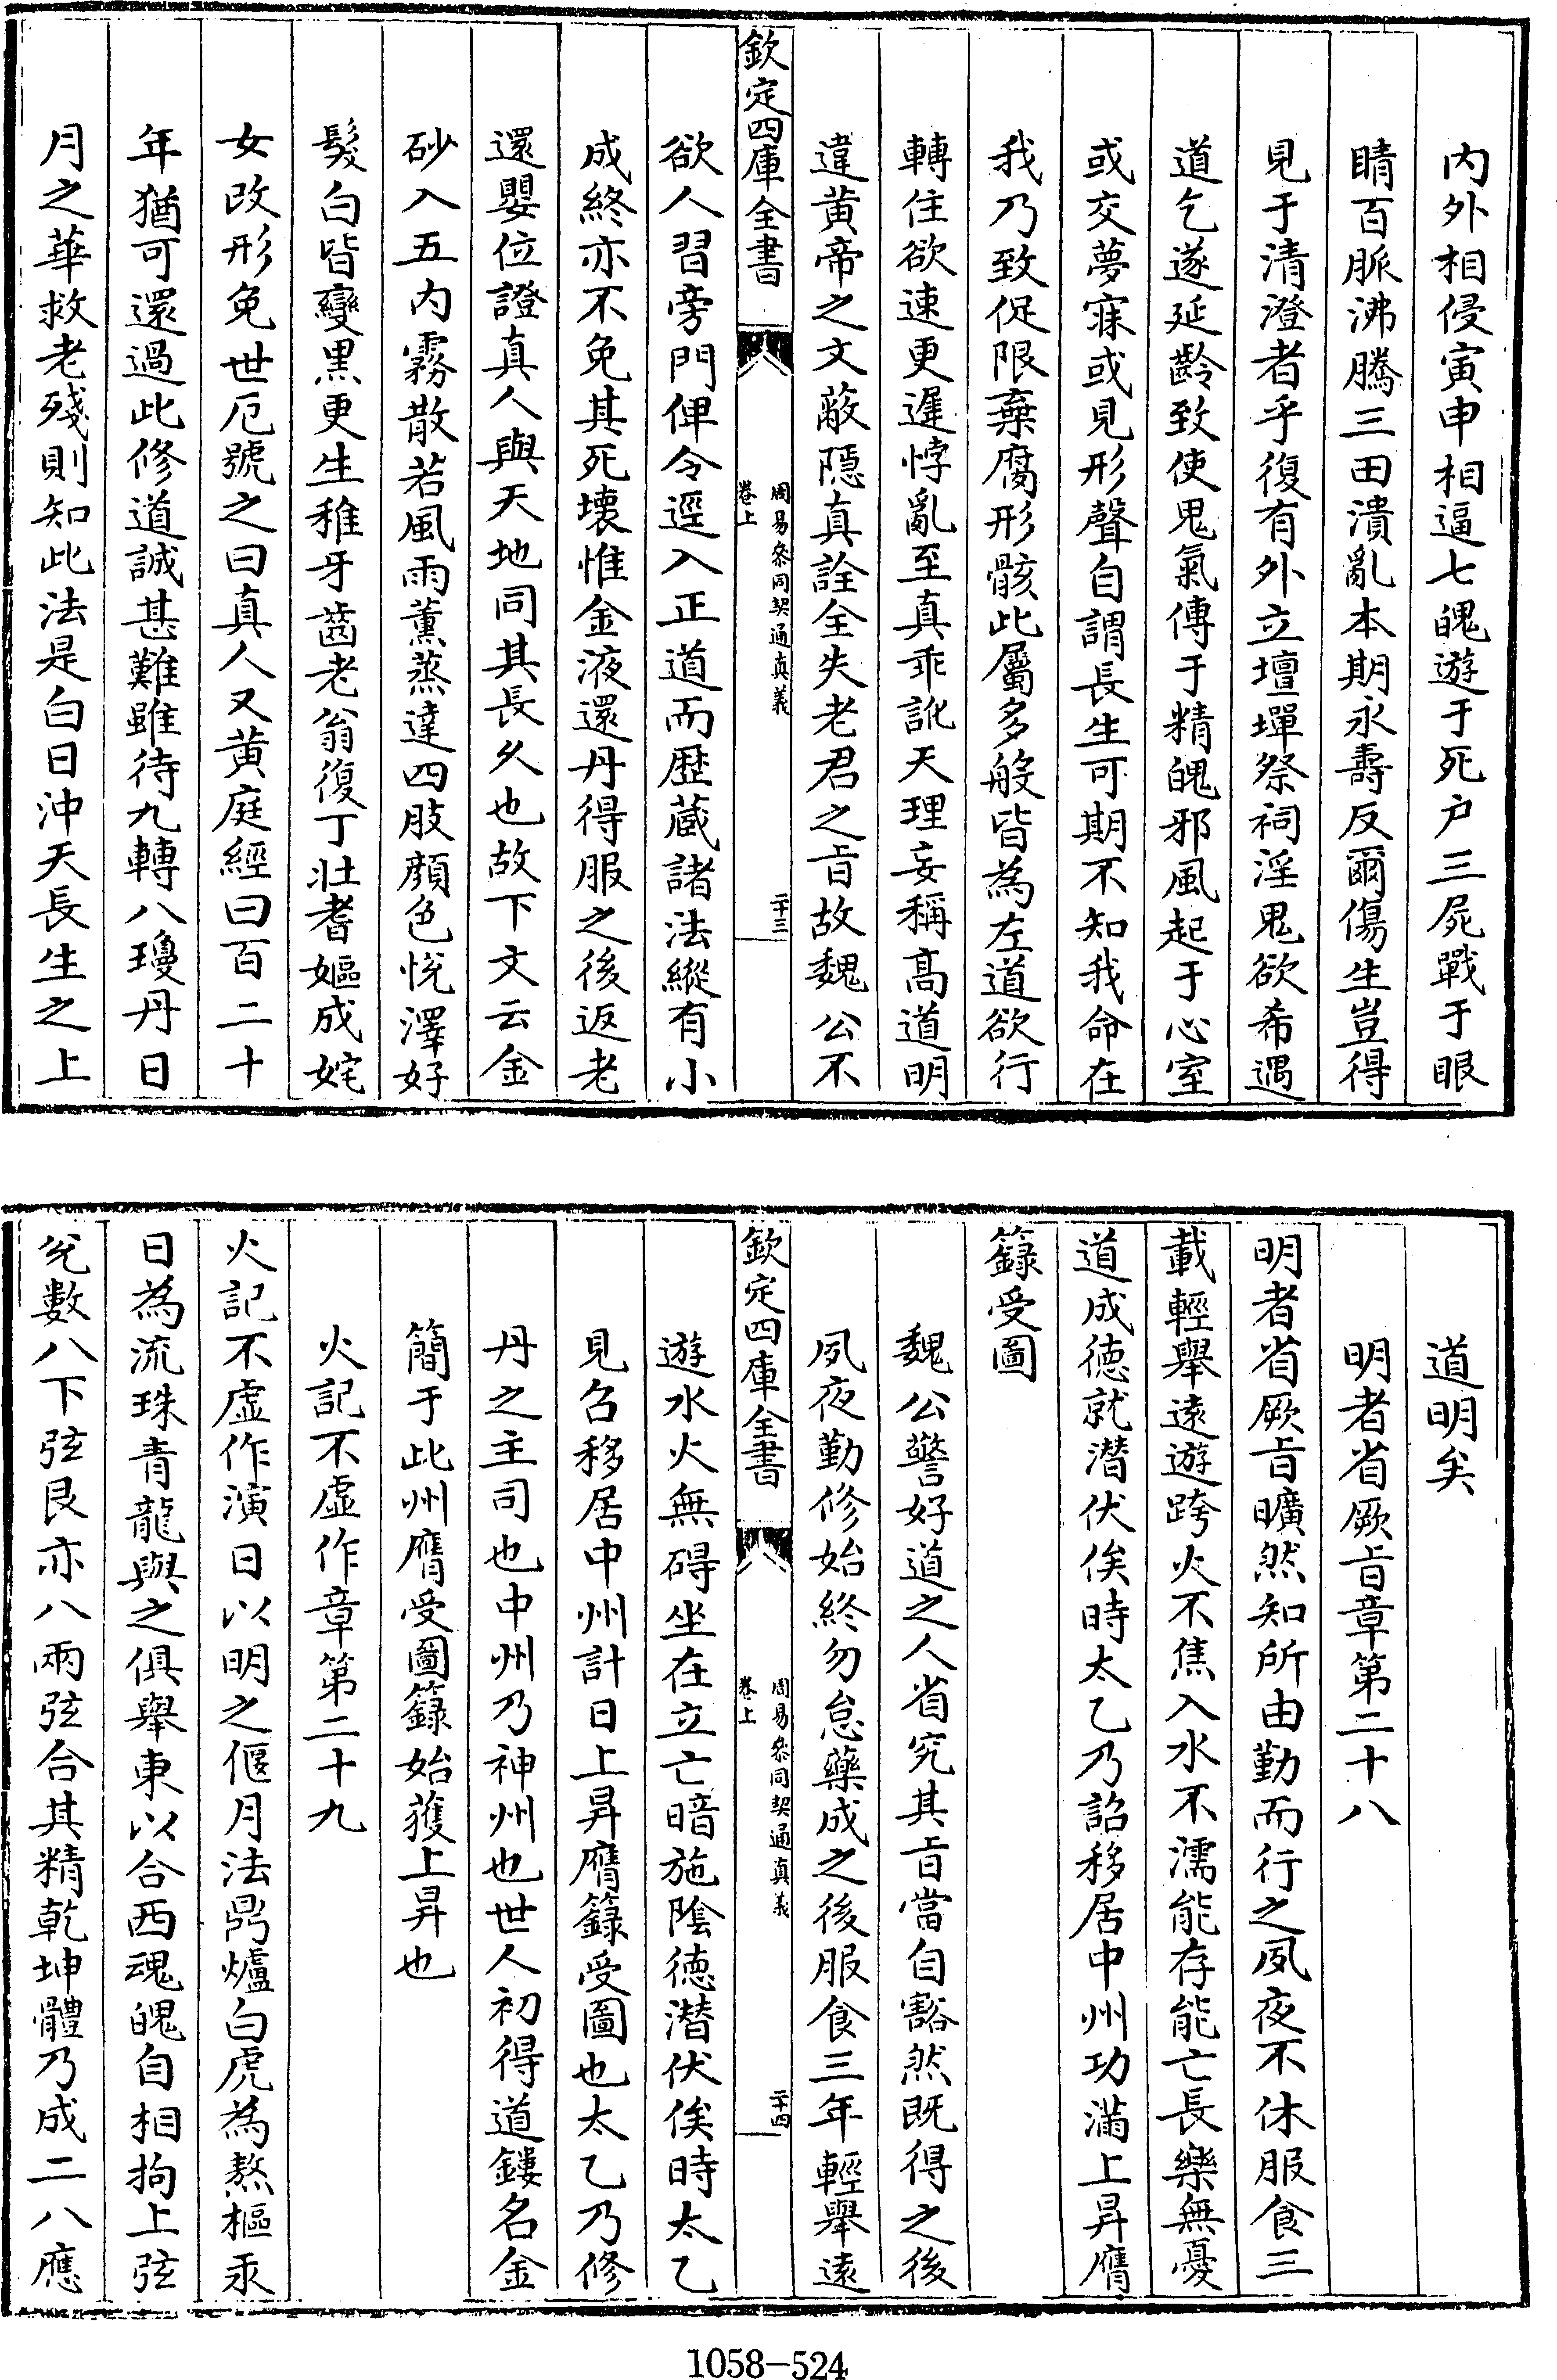 内外相侵寅申相逼七魄遊于死户三屍戰于眼
睛百脈沸騰三田潰亂本期永壽反爾傷生豈得
見于清澄者乎復有外立壇墠祭祠淫鬼欲希遇
道乞遂延齡致使鬼氣傳于精魄邪風起于心室
或交夢寐或見形聲自謂長生可期不知我命在
我乃致促限棄腐形骸此屬多般皆為左道欲行
轉住欲速更遲悖亂至真乖訛天理妄稱高道明
違黄帝之文蔽隱真詮全失老君之旨故魏公不
欽定四庫全書
周易參同契通真義
卷上
二十三
欲人習旁門俾令逕入正道而歷藏諸法縱有小
成終亦不免其死壞惟金液還丹得服之後返老
還嬰位證真人與天地同其長久也故下文云金
砂入五内霧散若風雨薰蒸達四肢顔色悅澤好
髮白皆變黑更生稚牙齒老翁復丁壯耆嫗成姹
女改形免世厄號之曰真人又黄庭經曰百二十
年猶可還過此修道誠甚難雖待九轉八瓊丹日
月之華救老殘則知此法是白日沖天長生之上
道明矣
明者省厥旨章第二十八
明者省厥旨曠然知所由勤而行之夙夜不休服食三
載輕舉遠遊跨火不焦入水不濡能存能亡長樂無憂
道成德就潛伏俟時太乙乃詔移居中州功滿上昇膺
籙受圖
魏公警好道之人省究其旨當自豁然既得之後
夙夜勤修始終勿怠藥成之後服食三年輕舉遠
欽定四庫全書
周易參同契通真義
卷上
二十四
遊水火無碍坐在立亡暗施陰德潛伏俟時太乙
見召移居中州計日上昇膺籙受圖也太乙乃修
丹之主司也中州乃神州也世人初得道鏤名金
簡于此州膺受圖籙始獲上昇也
火記不虚作章第二十九
火記不虚作演日以明之偃月法鼎爐白虎為熬樞汞
日為流珠青龍與之俱舉東以合西魂魄自相拘上弦
兌數八下弦艮亦八兩弦合其精乾坤體乃成二八應
1058-524